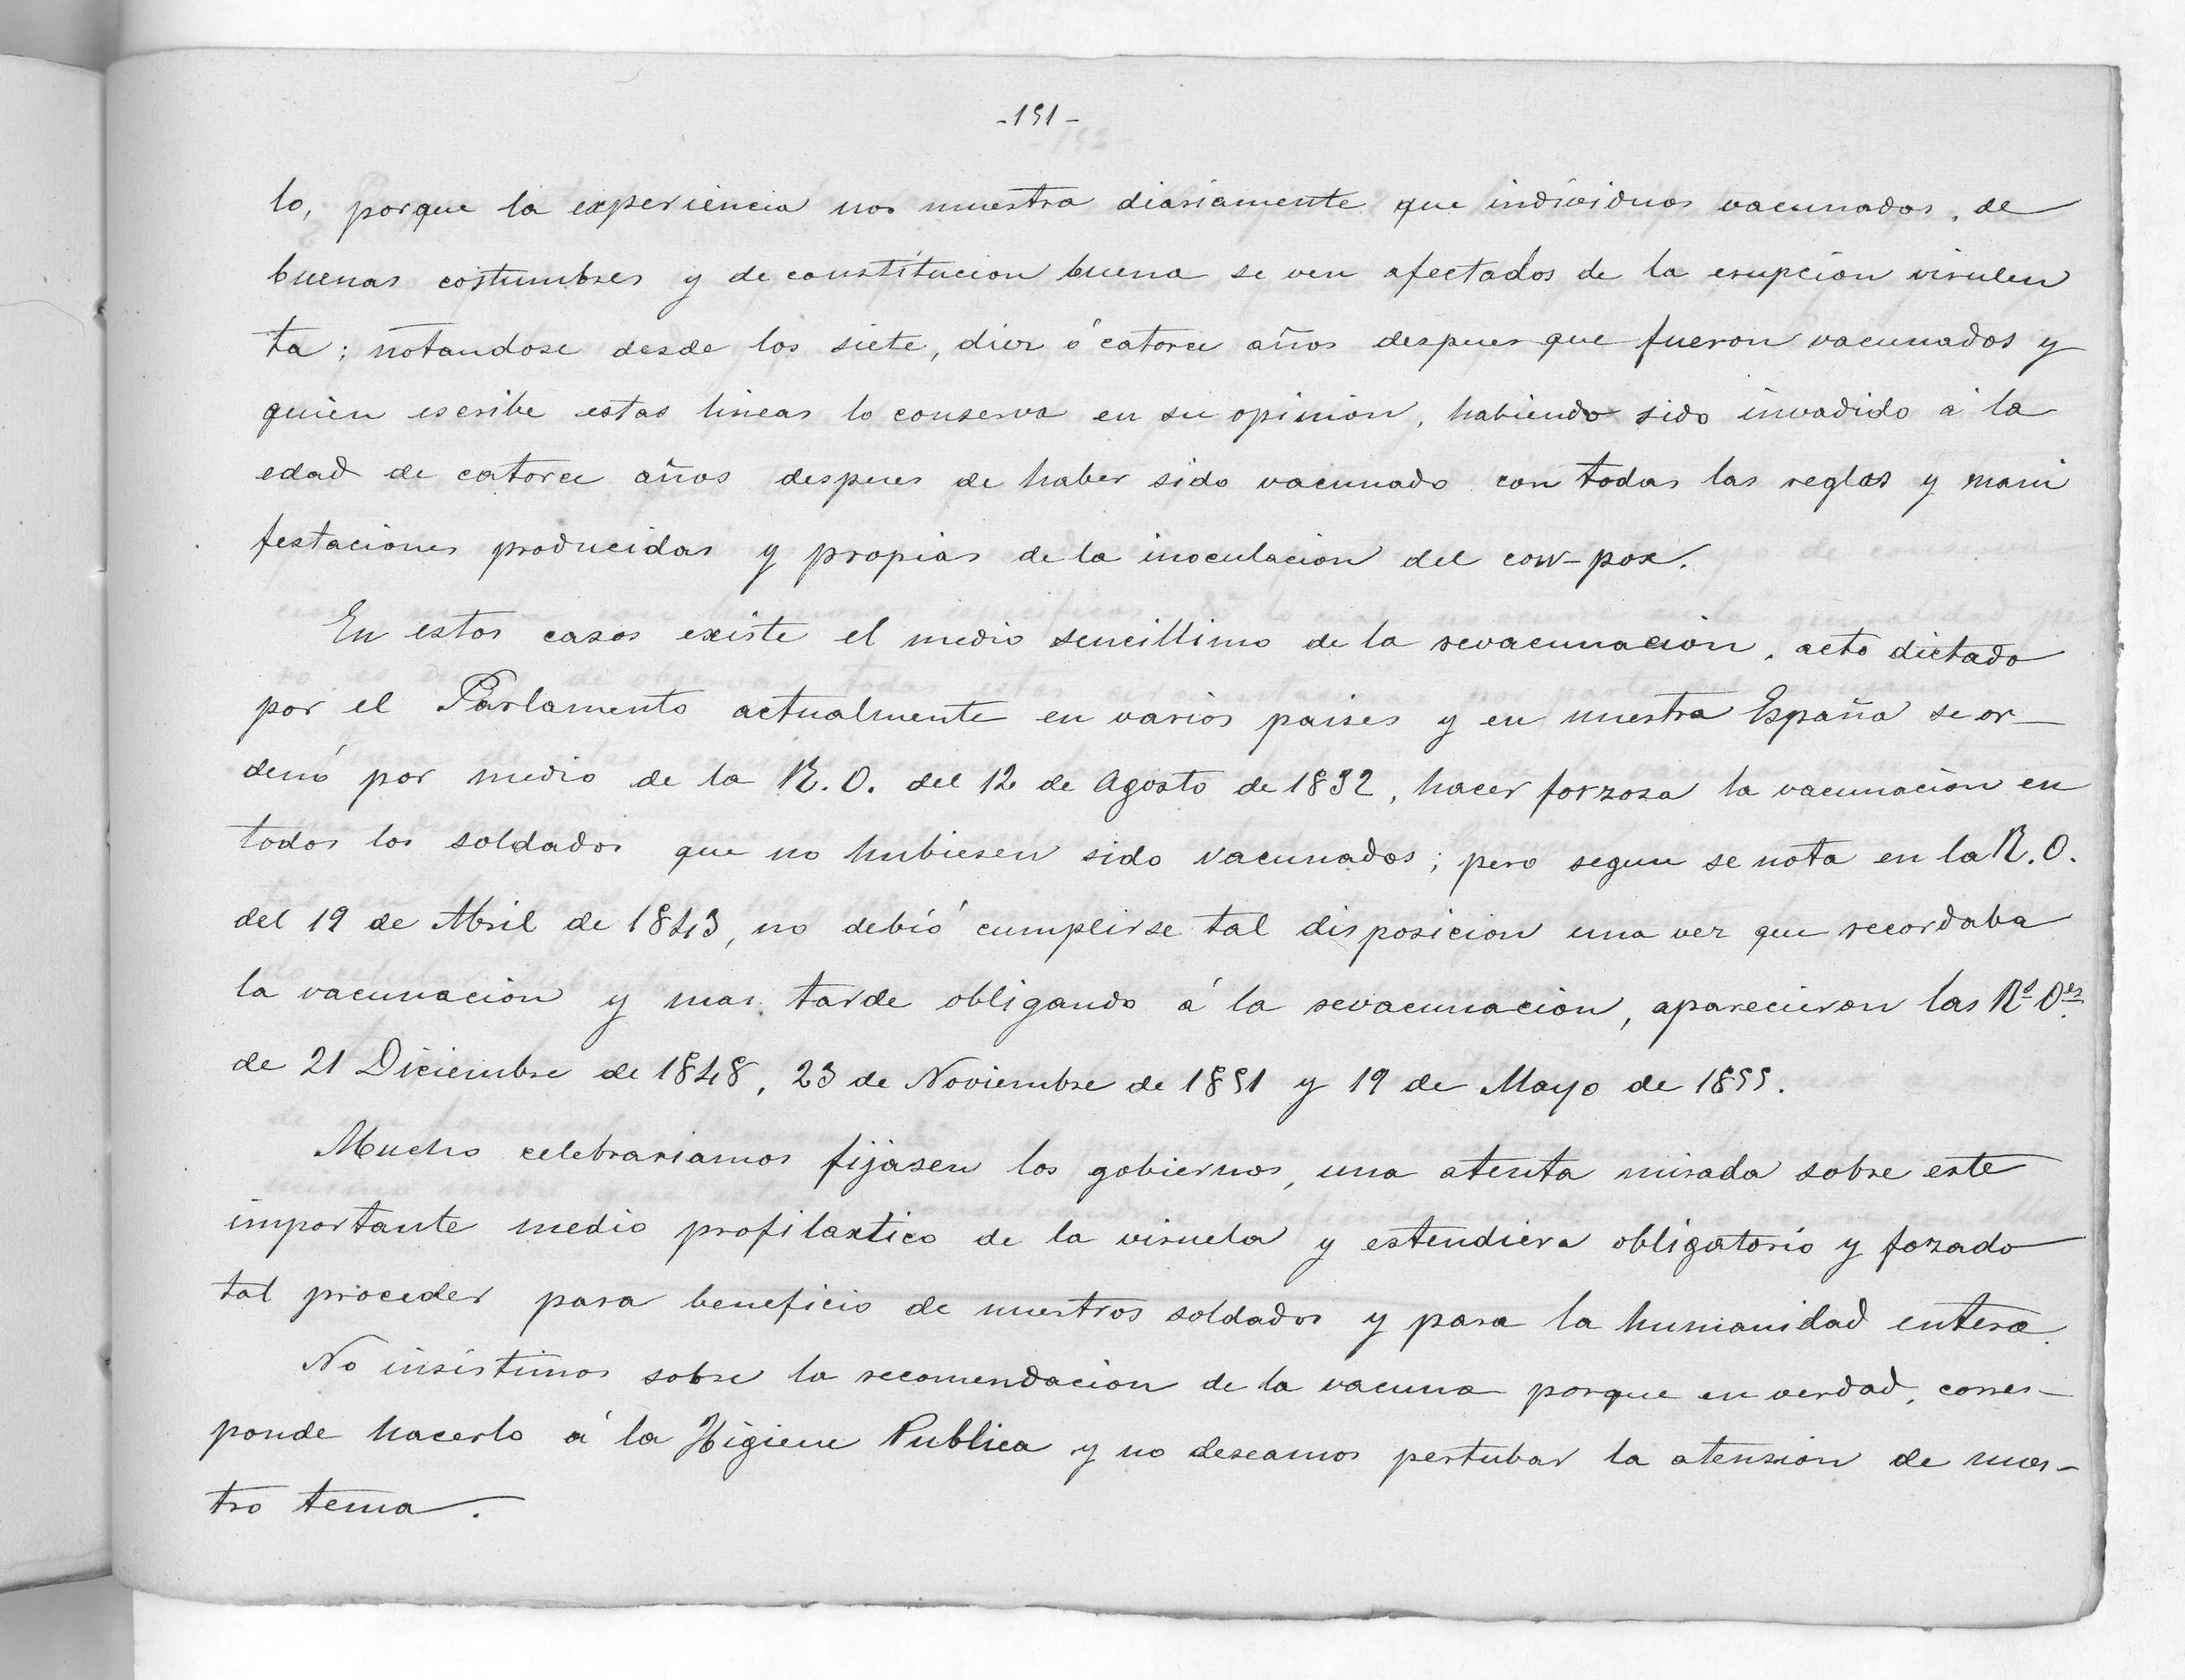 -151-
lo, porque la experiencia nos muestra diariamente que individuos vacunados, de
buenas costumbres y de constitucion buena se ven afectados de la erupcion virulen
ta; notandose desde los siete, diez ó catorce años despues que fueron vacunados y
quien escribe estas lineas lo conserva en su opinion, habiendo sido invadido á la
edad de catorce años despues de haber sido vacunado con todas las reglas y mani
festaciones producidas y propias de la inoculacion del cow-pox.
En estos casos existe el medio sencillimo de la revacunacion, acto dictado
por el Parlamento actualmente en varios paises y en nuestra España se or-
denó por medio de la R. O. del 12 de Agosto de 1832, hacer forzosa la vacunacion en
todos los soldados que no hubiesen sido vacunados; pero segun se nota en la R. O.
del 19 de Abril de 1843, no debió cumplirse tal disposicion una vez que recordaba
la vacunacion y mas tarde obligando á la revacunacion, aparecieron las Rs Oes
de 21 Diciembre de 1848, 23 de Noviembre de 1851 y 19 de Mayo de 1855.
Mucho celebrariamos fijasen los gobiernos, una atenta mirada sobre este
importante medio profilaxtico de la viruela y estendiera obligatorio y forzado
tal proceder para beneficio de nuestros soldados y para la humanidad entera.
No insistimos sobre la recomendacion de la vacuna porque en verdad, corres-
ponde hacerlo á la Higiene Publica y no deseamos pertubar la atension de nues-
tro tema.